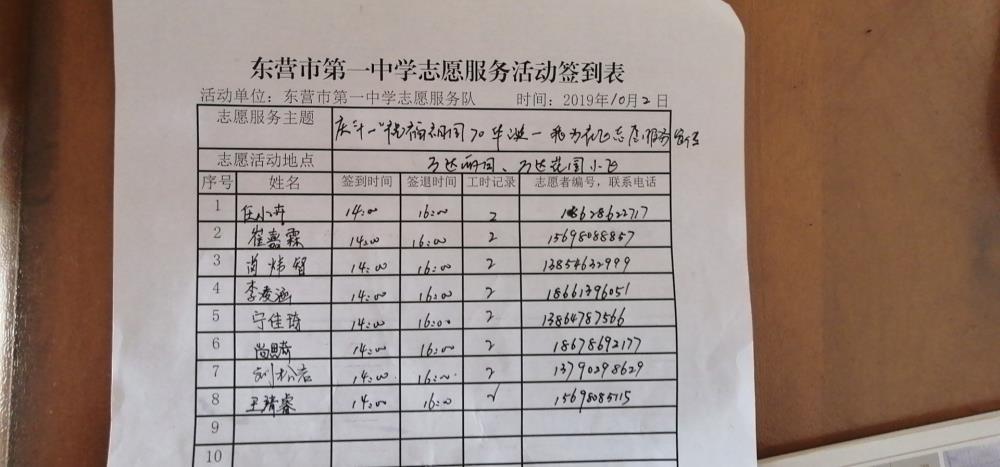 东营市第一中学志愿服务活动签到表
活动单位：东营市第一中学志愿服务队 时间：2019年10月2日
志愿服务主题 庆十一"祝福祖国70华诞一我为
志愿活动地点
序号 姓名 签到时间 签退时间 工时记录 志愿者编号，联系电话
1 任小卉 14:00 16:00 2
2 崔嘉霖 14:00 16:00 2 15698088857
3 炜智 14:00 16:00 2 13854632999
4 李凌涵 14:00 16:00 2 18661396051
5 宁佳琦 14:00 16:00 2 13864787566
6 尚思琦 14:00 16:00 2 18678692177
7 刘松岩 14:00 16:00 2 13790298629
8 王靖睿 14:00 16:00 15698085115
9
10